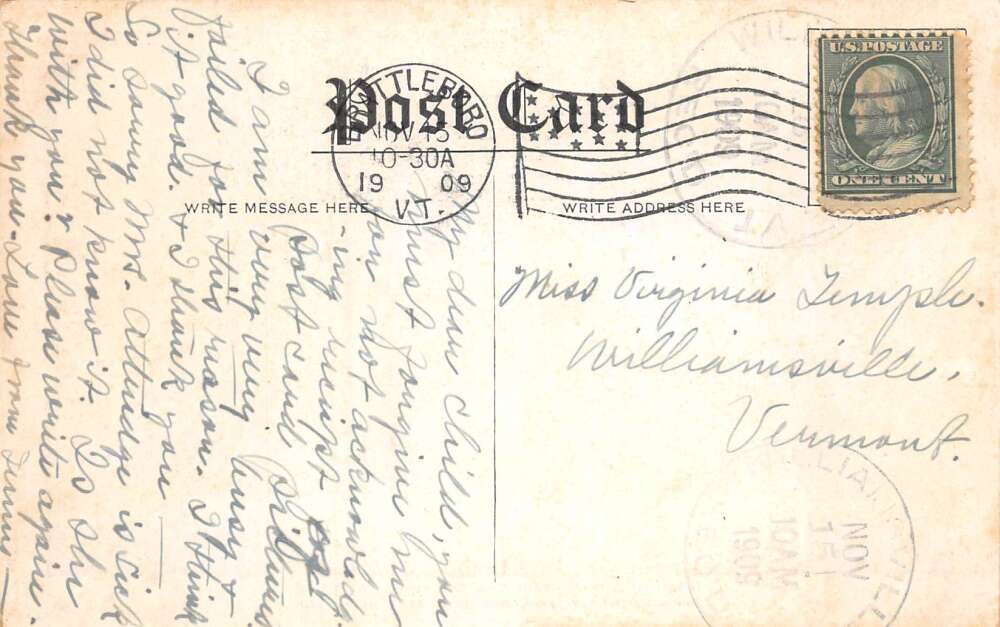 Post Card
BRATTLEBORO
NOV 15
10-30A
19 09
VT.
U.S. POSTAGE
ONE CENT
WRITE MESSAGE HERE
WRITE ADDRESS HERE
Miss Virginia Temple.
Williamsville,
Vermont.
My dear child, you
must forgive me
for not acknowledg
-ing receipt of
Post card
I am very very busy &
failed for this reason. I think
it good. & I thank you
So sorry Mrs. Attridge is sick
I did not know it. Is she
with you? Please write again.
Thank you - Love from
WILLIAMSVILLE
NOV
15
10AM
1909
REC'D
VT.
WILLIAMSVILLE
NOV
15
10AM
1909